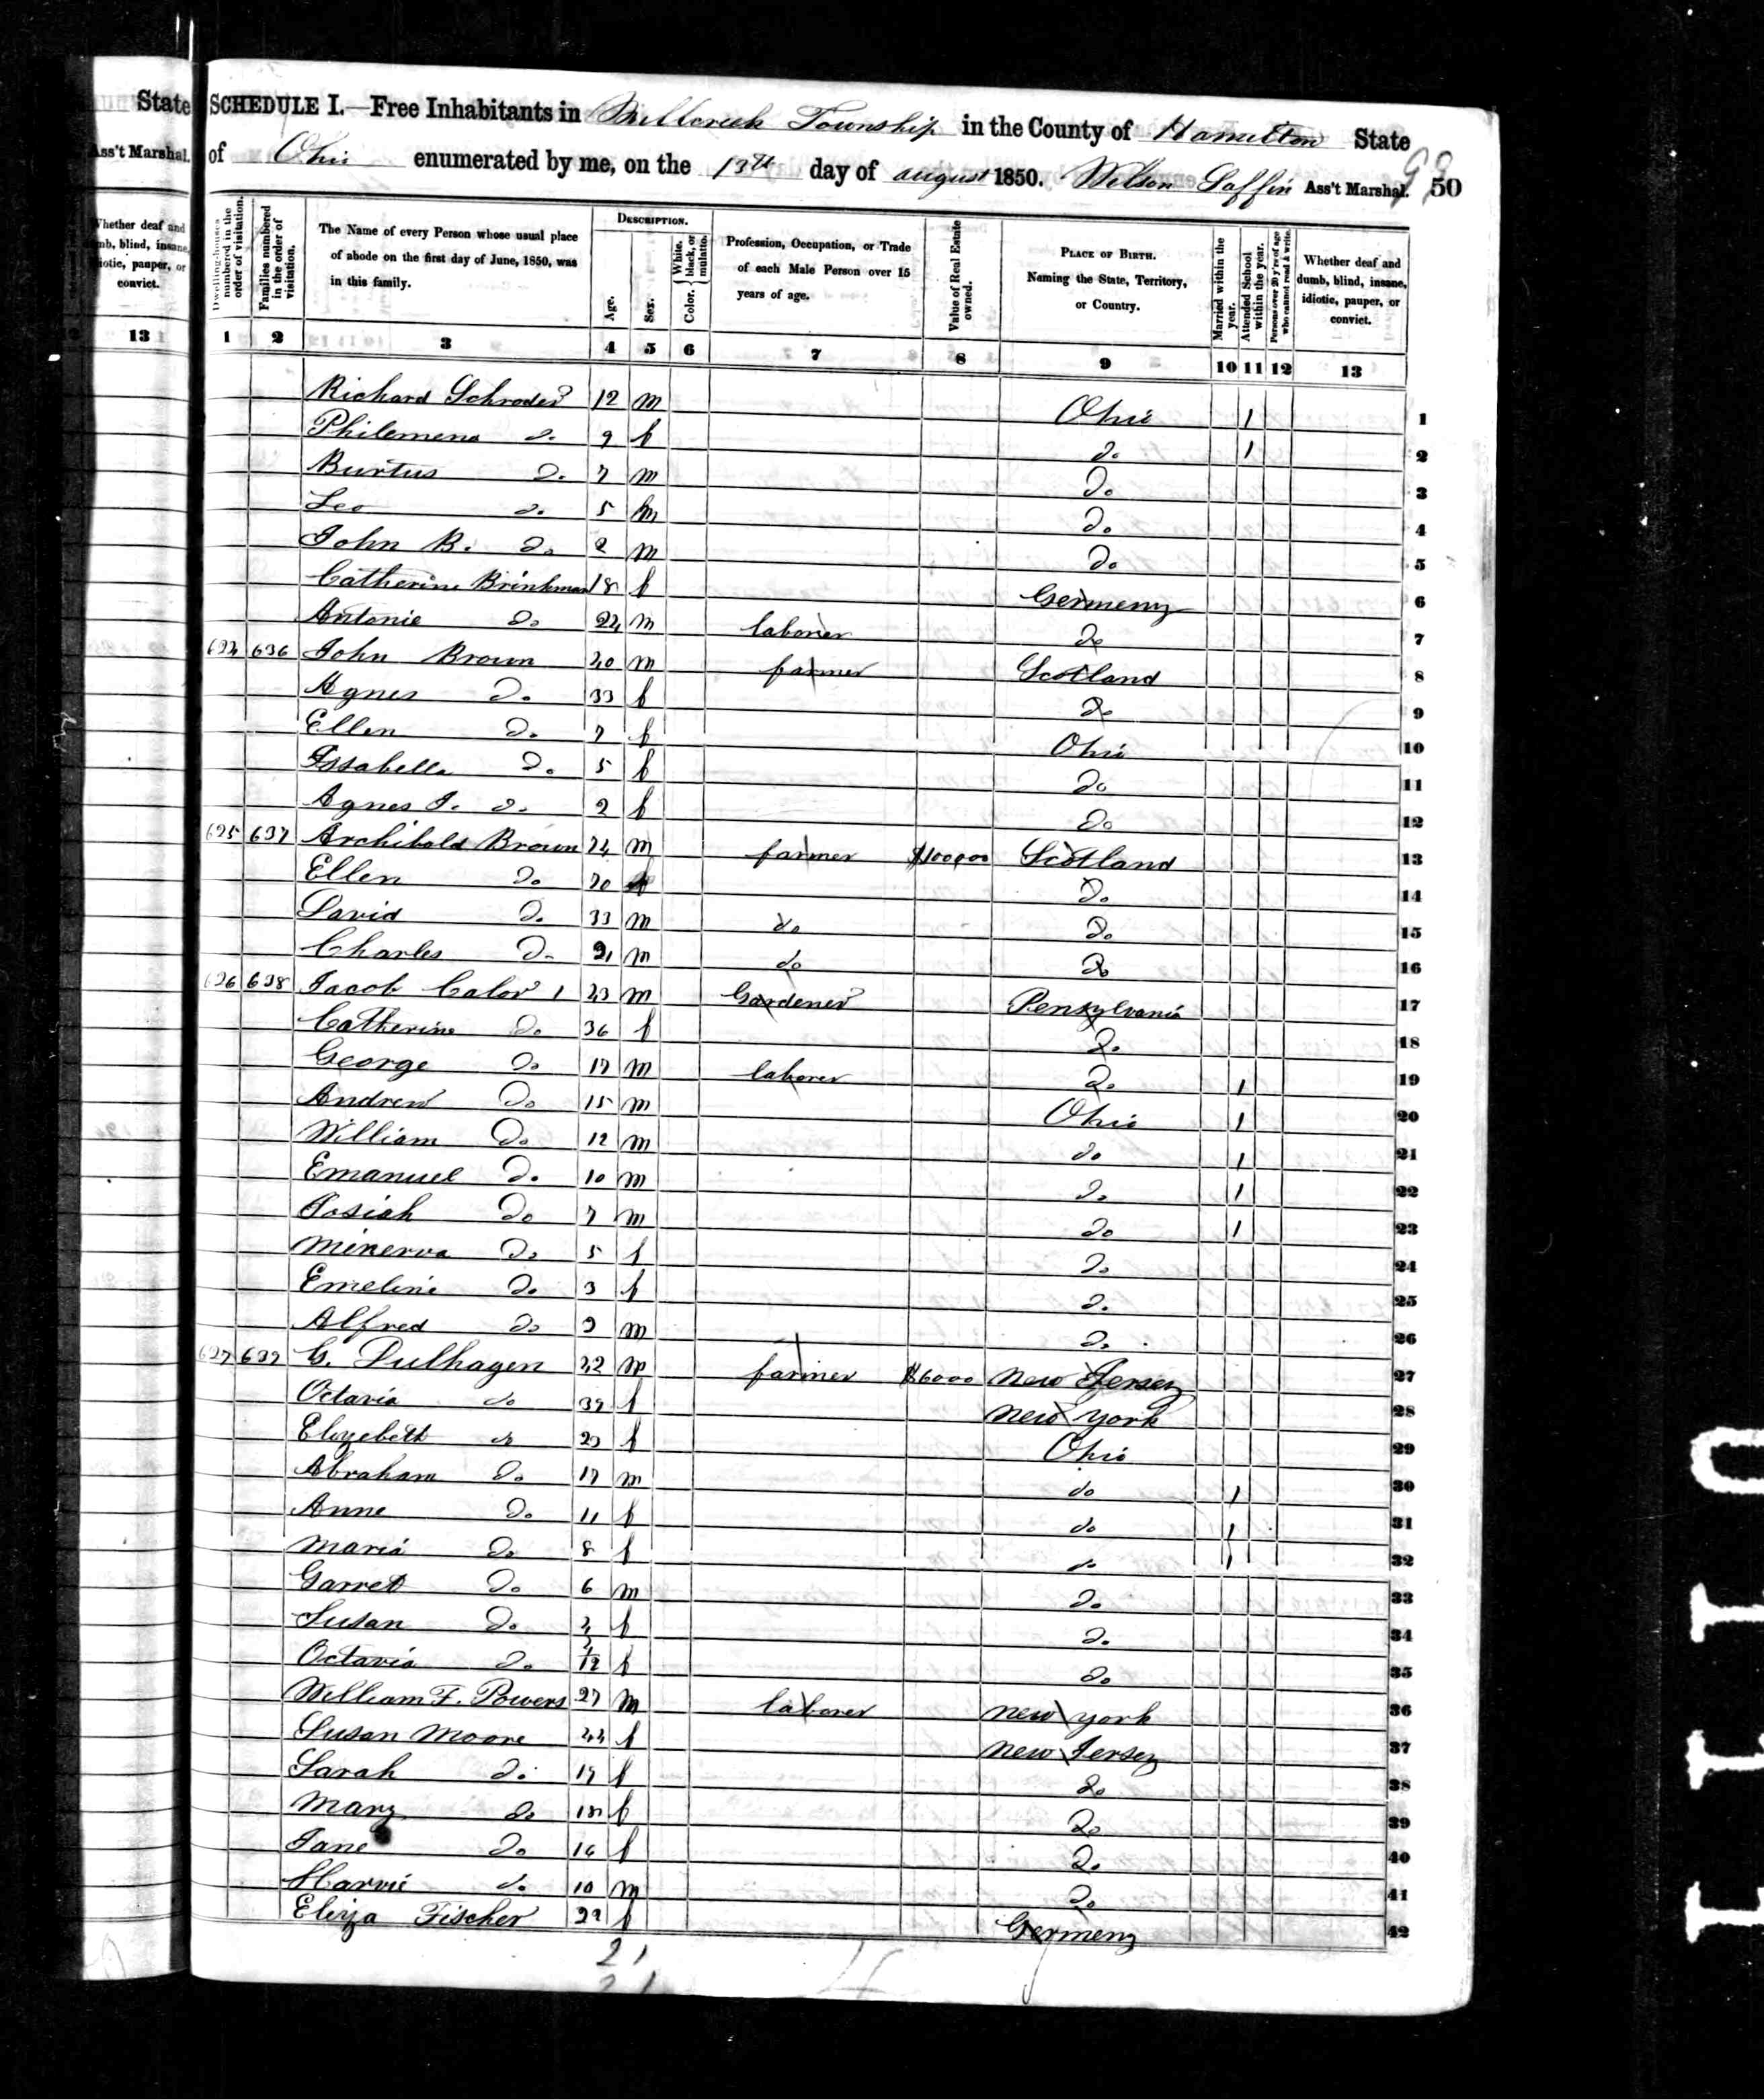 State
Ass't Marshal.
Whether deaf and
dumb, blind, insane,
idiotic, pauper, or
convict.
13
SCHEDULE I.—Free Inhabitants in Millcreek Township in the County of Hamilton State
of Ohio enumerated by me, on the 13th day of august 1850. Wilson Laffin Ass't Marshal. 50
Dwelling-houses numbered in the order of visitation.
Families numbered in the order of visitation.
The Name of every Person whose usual place of abode on the first day of June, 1850, was in this family.
DESCRIPTION.
Age.
Sex.
Color. White, black, or mulatto.
Profession, Occupation, or Trade of each Male Person over 15 years of age.
Value of Real Estate owned.
PLACE OF BIRTH. Naming the State, Territory, or Country.
Married within the year.
Attended School within the year.
Persons over 20 y'rs of age who cannot read & write.
Whether deaf and dumb, blind, insane, idiotic, pauper, or convict.
1 2 3 4 5 6 7 8 9 10 11 12 13
Richard Schroder 12 m Ohio 1 1
Philemena do 9 f do 1 2
Burtus Do 7 m Do 3
Leo do 5 m Do 4
John B. Do 2 m Do 5
Catherine Brinkman 18 f Germeny 6
Antonie Do 24 m laborer do 7
624 636 John Brown 40 m farmer Scotland 8
Agnes Do 33 f do 9
Ellen Do 7 f Ohio 10
Issabella Do 5 f Do 11
Agnes J. do 2 f Do 12
625 637 Archibald Brown 24 m farmer Scotland 13
Ellen Do f Do 14
David Do 33 m do Do 15
Charles Do 21 m do Do 16
626 638 Jacob 43 m Gardener Pensylvania 17
Catherine Do 36 f Do 18
George Do 17 m laborer Do 1 19
Andrew Do 15 m Ohio 1 20
William Do 12 m do 1 21
Emanuel Do 10 m Do 1 22
Josiah Do 7 m do 1 23
Minerva Do 5 f Do 24
Emeline Do 3 f Do 25
Alfred Do 2 m Do 26
627 639 G. Dulhagen 42 m farmer $6000 New Jersey 27
Octavia do 39 f New york 28
Elizebeth do 20 f Ohio 29
Abraham Do 17 m do 1 30
Anne Do 11 f do 1 31
Maria Do 8 f do 1 32
Garret Do 6 m Do 33
Susan Do 4 f Do 34
Octavia Do f do 35
William F. Powers 27 m laborer New york 36
Susan Moore 44 f New Jersey 37
Sarah Do 19 f do 38
Mary Do 18 f Do 39
Jane Do 16 f Do 40
Harvie do 10 m Do 41
Eliza Fischer 22 f Germeny 42
21
21